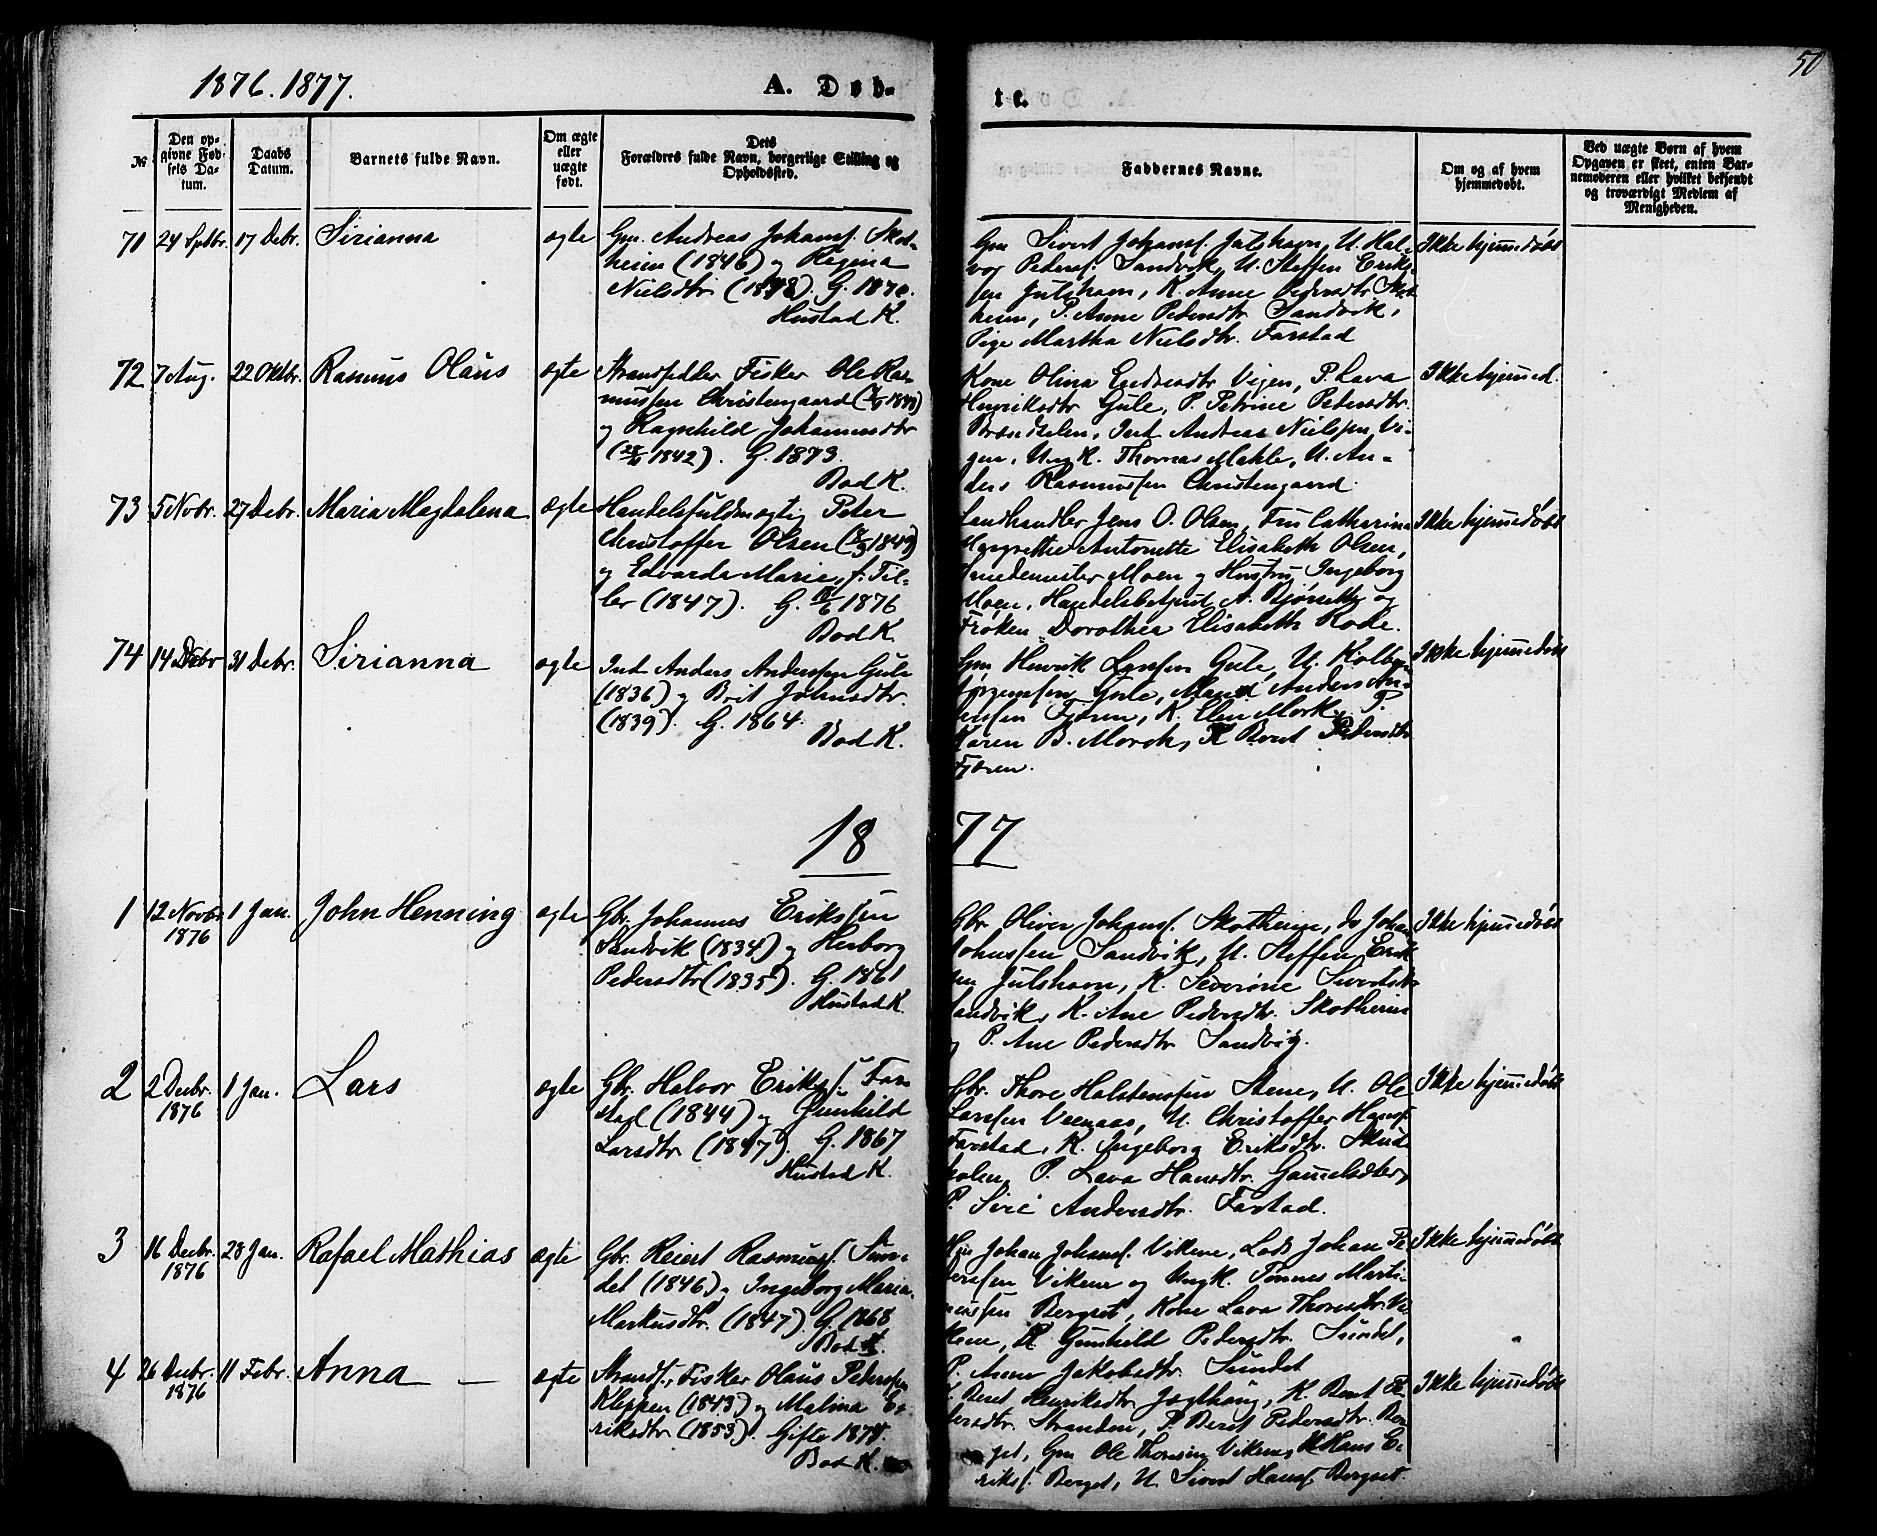 1876. 1877.
A. Døb-
te.
50
№
Den op-
givne Fød-
sels Da-
tum.
Daabs
Datum.
Barnets fulde Navn.
Om ægte
eller
uægte
født.
Dets
Forældres fulde Navn, borgerlige Stilling og
Opholdssted.
Faddernes Navne.
Om og af hvem
hjemmedøbt.
Ved uægte Børn af hvem
Opgaven er skeet, enten Bar-
nemoderen eller hvilket bekjendt
og troværdigt Medlem af
Menigheden.
71 24 Septbr. 17 Debr. Sirianna ægte
Gm. Andreas Johansf. Skot-
heim (1846) og Regina
Nielsdtr (1848). G. 1870.
Hustad K.
Gm Sivert Johansf. Julshavn, U. Hal-
vor Pedersf. Sandvik, U. Steffen Erik-
sen Julshavn, K. Anne Pedersdtr Skot
heim, P. Anne Pedersdtr Sandvik,
Pige Martha Nielsdtr. Farstad
Ikke hjemmedøbt
72 7 Aug. 22 Oktbr. Rasmus Olaus ægte
Strandsidder Fisker Ole Ras-
mussen Christengaard
og Ragnhild Johannesdtr
(1842). G. 1873.
Bod K.
Kone Olina Endresdtr Vigen, P. Lava
Henriksdtr Gule, P. Petrine Petersdtr.
Brændselen, Ind. Andreas Nielsen Vi-
gen, Ungk. Thomas Male, U. An-
ders Rasmussen Christengaard.
Ikke hjemmed.
73 5 Novbr. 27 Debr. Maria Magdalena ægte
Handelsfuldmægtig Peter
Christoffer Olsen
og Edvarda Marie, f. Til-
ler (1847). G. 18/6 1876
Bod K.
Landhandler Jens O. Olsen, Fru Catharina
Margrethe Antonette Elisabeth Olsen,
Smedemester Moen og Hustru Ingeborg
Moen, Handelsbetjent A. og
Frøken Dorothea Elisabeth Rode.
Ikke hjemmedøbt
74 14 Debr 31 Debr. Sirianna ægte
Ind. Anders Anderssen Gule
(1836) og Brit Johnsdtr.
(1839). G. 1864.
Bod K.
Gm Henrik Larssen Gule, U. Kolbjørn
Jørgenssen Gule, Mand Anders An-
derssen Fjæren, K. Elen Mork, P.
Karen B. Morch, K Beret Pedersdtr
Fjæren.
Ikke hjemmedøbt
18 77
1 12 Novbr 1876 1 Jan. John Henning ægte
Gbr. Johannes Erikssen
Sandvik (1834) og Herborg
Pedersdtr (1835). G. 1861
Hustad K.
Gbr Oliver Johansf. Skotheim, do Johan
Johnssen Sandvik, U. Steffen Erik
sen Julshavn, K. Severine Sivertsdtr
Sandvik, K. Ane Pedersdtr. Skotheim
og P. Ane Pedersdtr Sandvig.
Ikke hjemmedøbt
2 2 Decbr. 1876 1 Jan. Lars ægte
Gbr. Halvor Eriksf. Far-
stad (1844) og Gunhild
Larsdtr (1847). G. 1867
Hustad K.
Gbr. Thore Halstenssen Stene, U. Ole
Larssen Veenaas, U. Christoffer Hansf.
Farstad, K. Ingeborg Eriksdtr. Skud
holen, P. Lava Hansdtr.
P. Siri Andersdtr. Farstad.
Ikke hjemmedøbt
3 16 Decbr. 1876 28 Jan. Rafael Mathias ægte
Gbr. Reiert Rasmusf. Sun-
det (1846) og Ingeborg Maria
Markusdtr. (1847). G. 1868
Bod K.
Gm Johan Johansf. Vikene, Lods Johan Pe-
derssen Vikene og Ungk. Tønnes Marti-
nussen Bergset, Kone Lava Thoresdtr. Vi-
kene, K Gunhild Pedersdtr. Sundet,
P. Anne Jakobsdtr. Sundet
Ikke hjemmedøbt
4 26 Decbr. 1876 11 Febr. Anna — ægte
Strands., Fisker Olaus Pederssen
Kleppen (1843) og Malina E-
riksdtr. (1853). Gifte 1874.
Bod K.
K. Beret Henriksdtr Jægthaug, K. Beret Pe-
dersdtr. Stranden, P. Beret Pedersdtr. Ber
get, Gm Ole Thoressen Vikene, U. Hans E-
riksf. Berget, U. Sivert Hansf. Bergset
Ikke hjemmedøbt